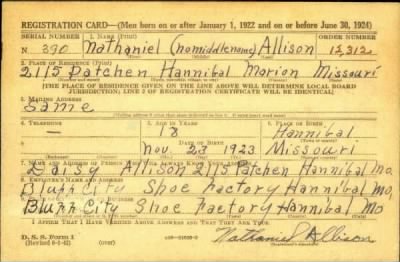 REGISTRATION CARD—(Men born on or after January 1, 1922 and on or before June 30, 1924)
SERIAL NUMBER 1. NAME (Print) ORDER NUMBER
N 390 Nathaniel (no middle name) Allison 12,312
2. PLACE OF RESIDENCE (Print)
2115 Patchen Hannibal Marion Missouri
[THE PLACE OF RESIDENCE GIVEN ON THE LINE ABOVE WILL DETERMINE LOCAL BOARD
JURISDICTION; LINE 2 OF REGISTRATION CERTIFICATE WILL BE IDENTICAL]
3. MAILING ADDRESS
Same
4. TELEPHONE 5. AGE IN YEARS 6. PLACE OF BIRTH
— 18 Hannibal
DATE OF BIRTH
Nov. 23 1923 Missouri
7. NAME AND ADDRESS OF PERSON WHO WILL ALWAYS KNOW YOUR ADDRESS
Daisy Allison 2115 Patchen Hannibal Mo.
8. EMPLOYER'S NAME AND ADDRESS
Bluff City Shoe Factory Hannibal Mo.
Bluff City Shoe Factory Hannibal Mo
I AFFIRM THAT I HAVE VERIFIED ABOVE ANSWERS AND THAT THEY ARE TRUE.
D. S. S. Form 1
(Revised 6-9-42) (over) Nathaniel Allison